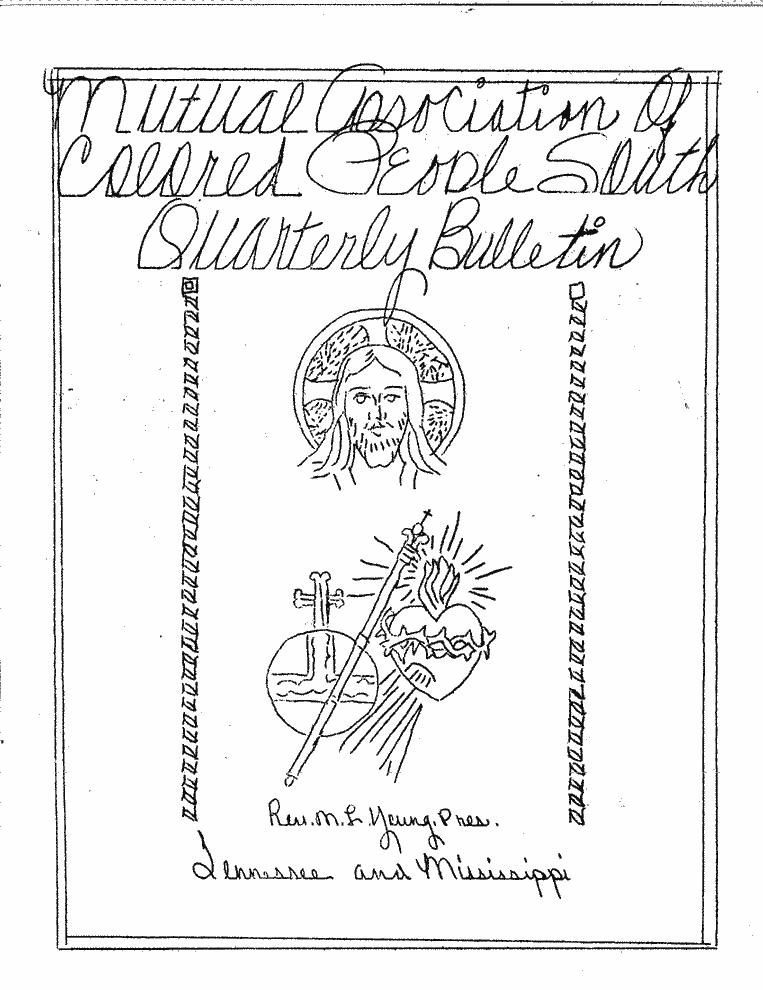 Mutual Association Of
Colored People South
Quarterly Bulletin
Rev. M. L. Young. Pres.
Tennessee and Mississippi